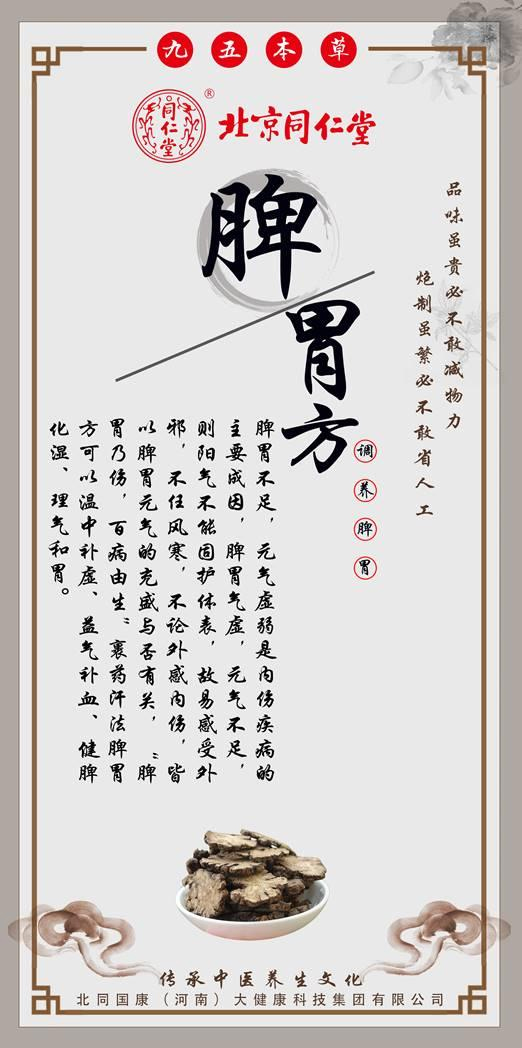 九五本草
同仁堂
®
北京同仁堂
脾胃方
调养脾胃
品味虽贵必不敢减物力
炮制虽繁必不敢省人工
脾胃不足，元气虚弱是内伤疾病的
主要成因，脾胃气虚，元气不足，
则阳气不能固护体表，故易感受外
邪，不任风寒，不论外感内伤，皆
以脾胃元气的充盛与否有关，“脾
胃乃伤，百病由生”裹药汗法脾胃
方可以温中补虚、益气补血、健脾
化湿、理气和胃。
传承中医养生文化
北同国康（河南）大健康科技集团有限公司